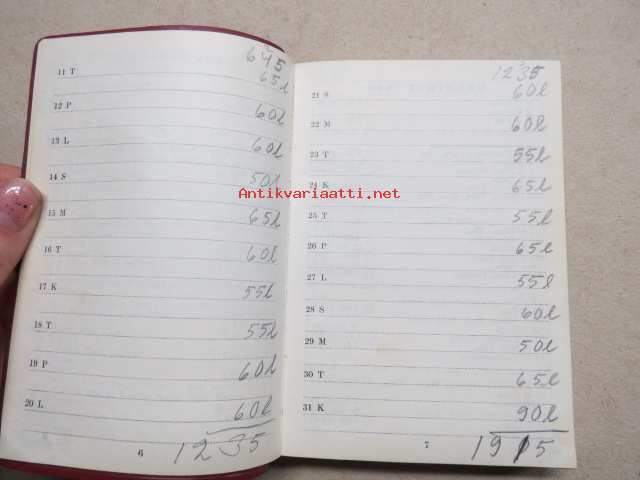 645
11 T 65l
12 P 60l
13 L 60l
14 S 50l
15 M 65l
16 T 60l
17 K 55l
18 T 55l
19 P 60l
20 L 60l
1235
6
1235
21 S 60l
22 M 60l
23 T 55l
24 K 65l
25 T 55l
26 P 65l
27 L 55l
28 S 60l
29 M 50l
30 T 65l
31 K 90l
1915
7
Antikvariaatti.net